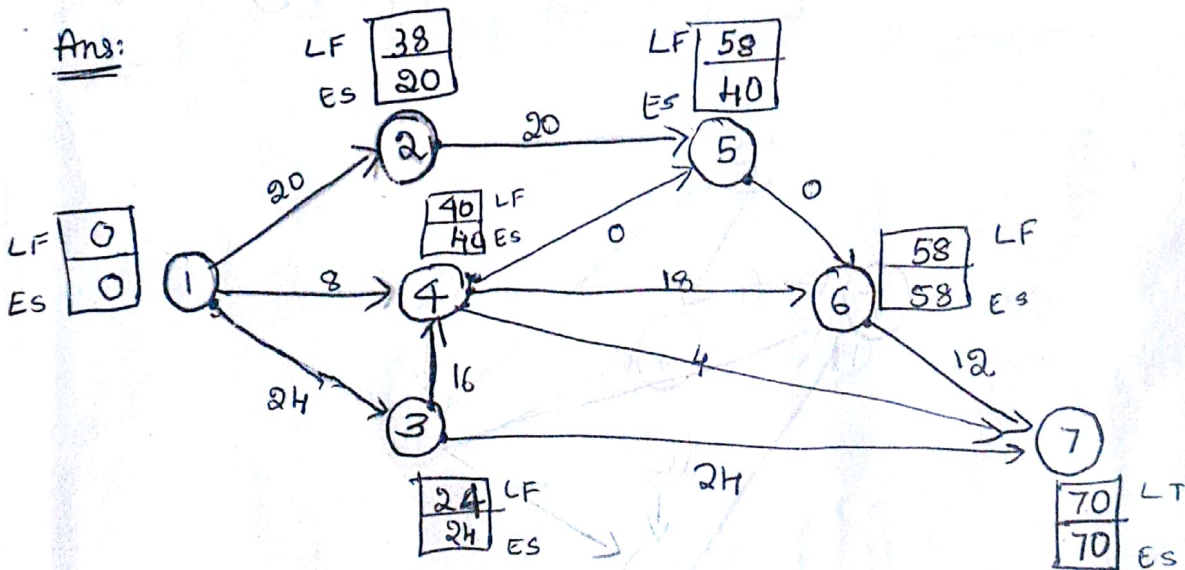 Ans:
LF 38
ES 20
LF 58
ES 40
2
20
5
20
0
LF 0
ES 0
40 LF
40 ES
0
58 LF
58 ES
1
8
4
18
6
24
16
4
12
3
24
7
24 LF
24 ES
70 LT
70 ES